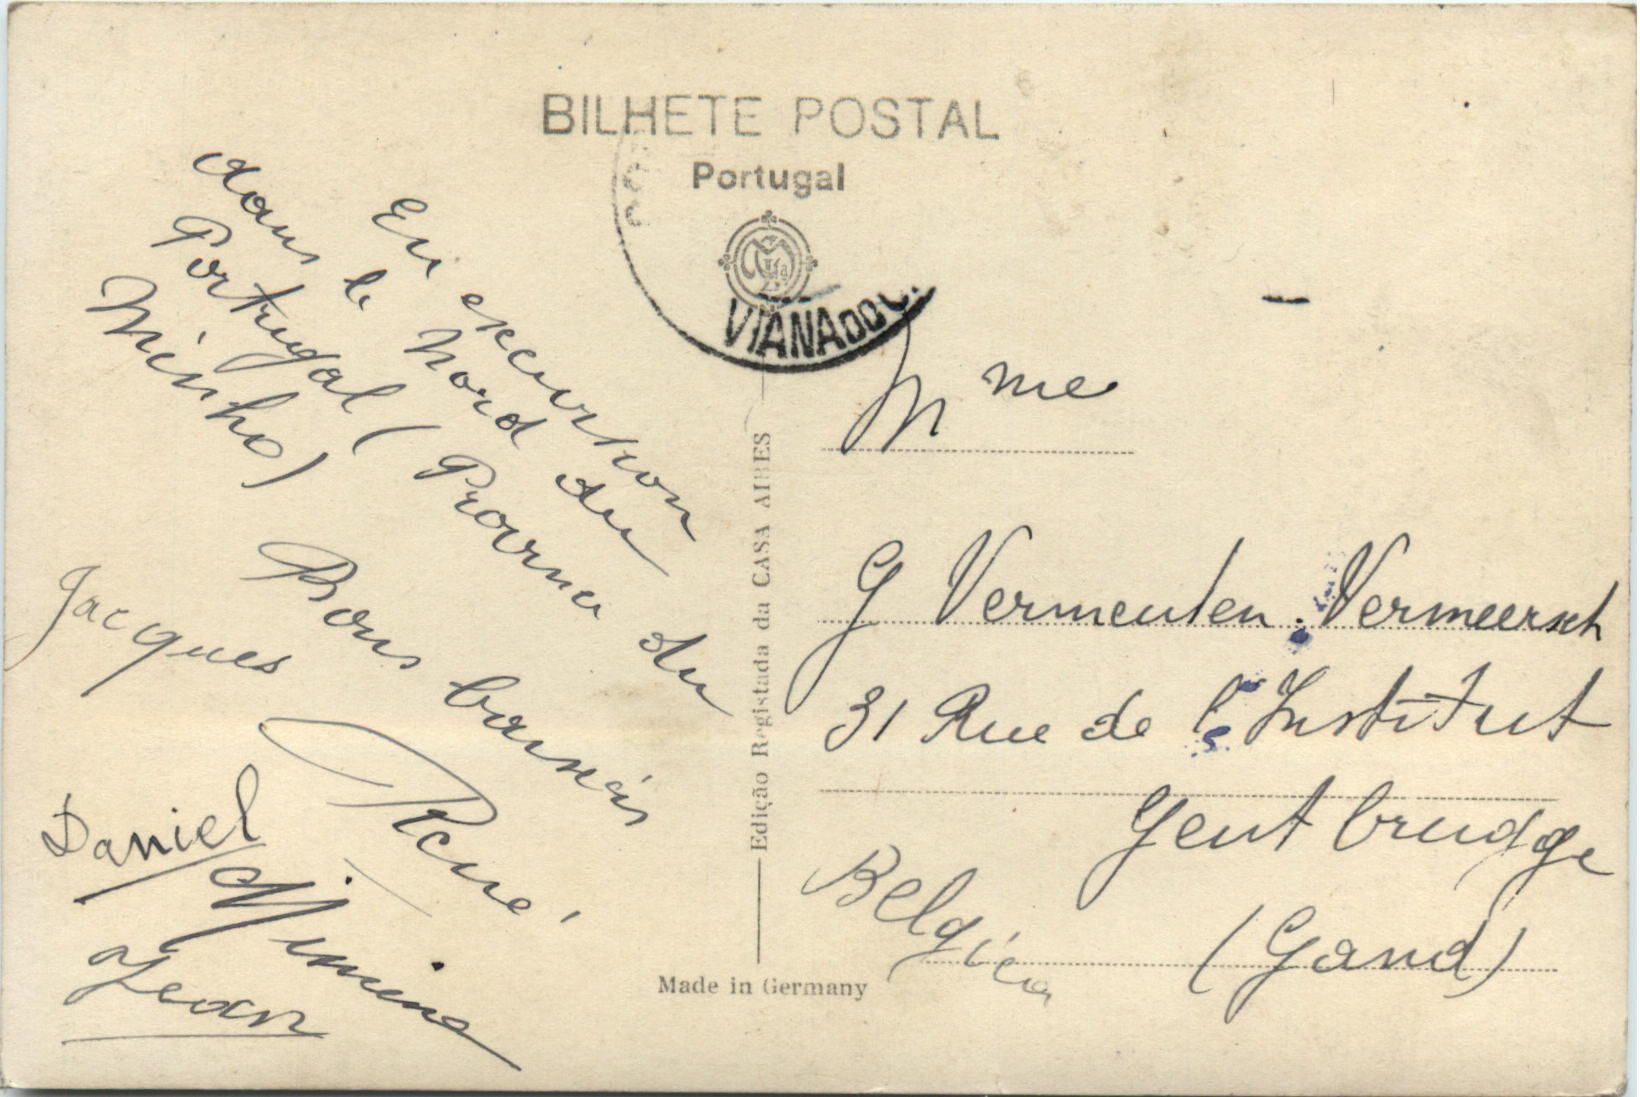 BILHETE POSTAL
Portugal
VIANA DO C
En excursion
dans le Nord du
Portugal (Province du
Minho)
Bons baisers
Jacques
René
Daniel
Jean
Edição Registada da CASA AIRES
Made in Germany
Mme
G Vermeulen-Vermeersch
31 Rue de l'Institut
Gentbrugge
(Gand)
Belgica